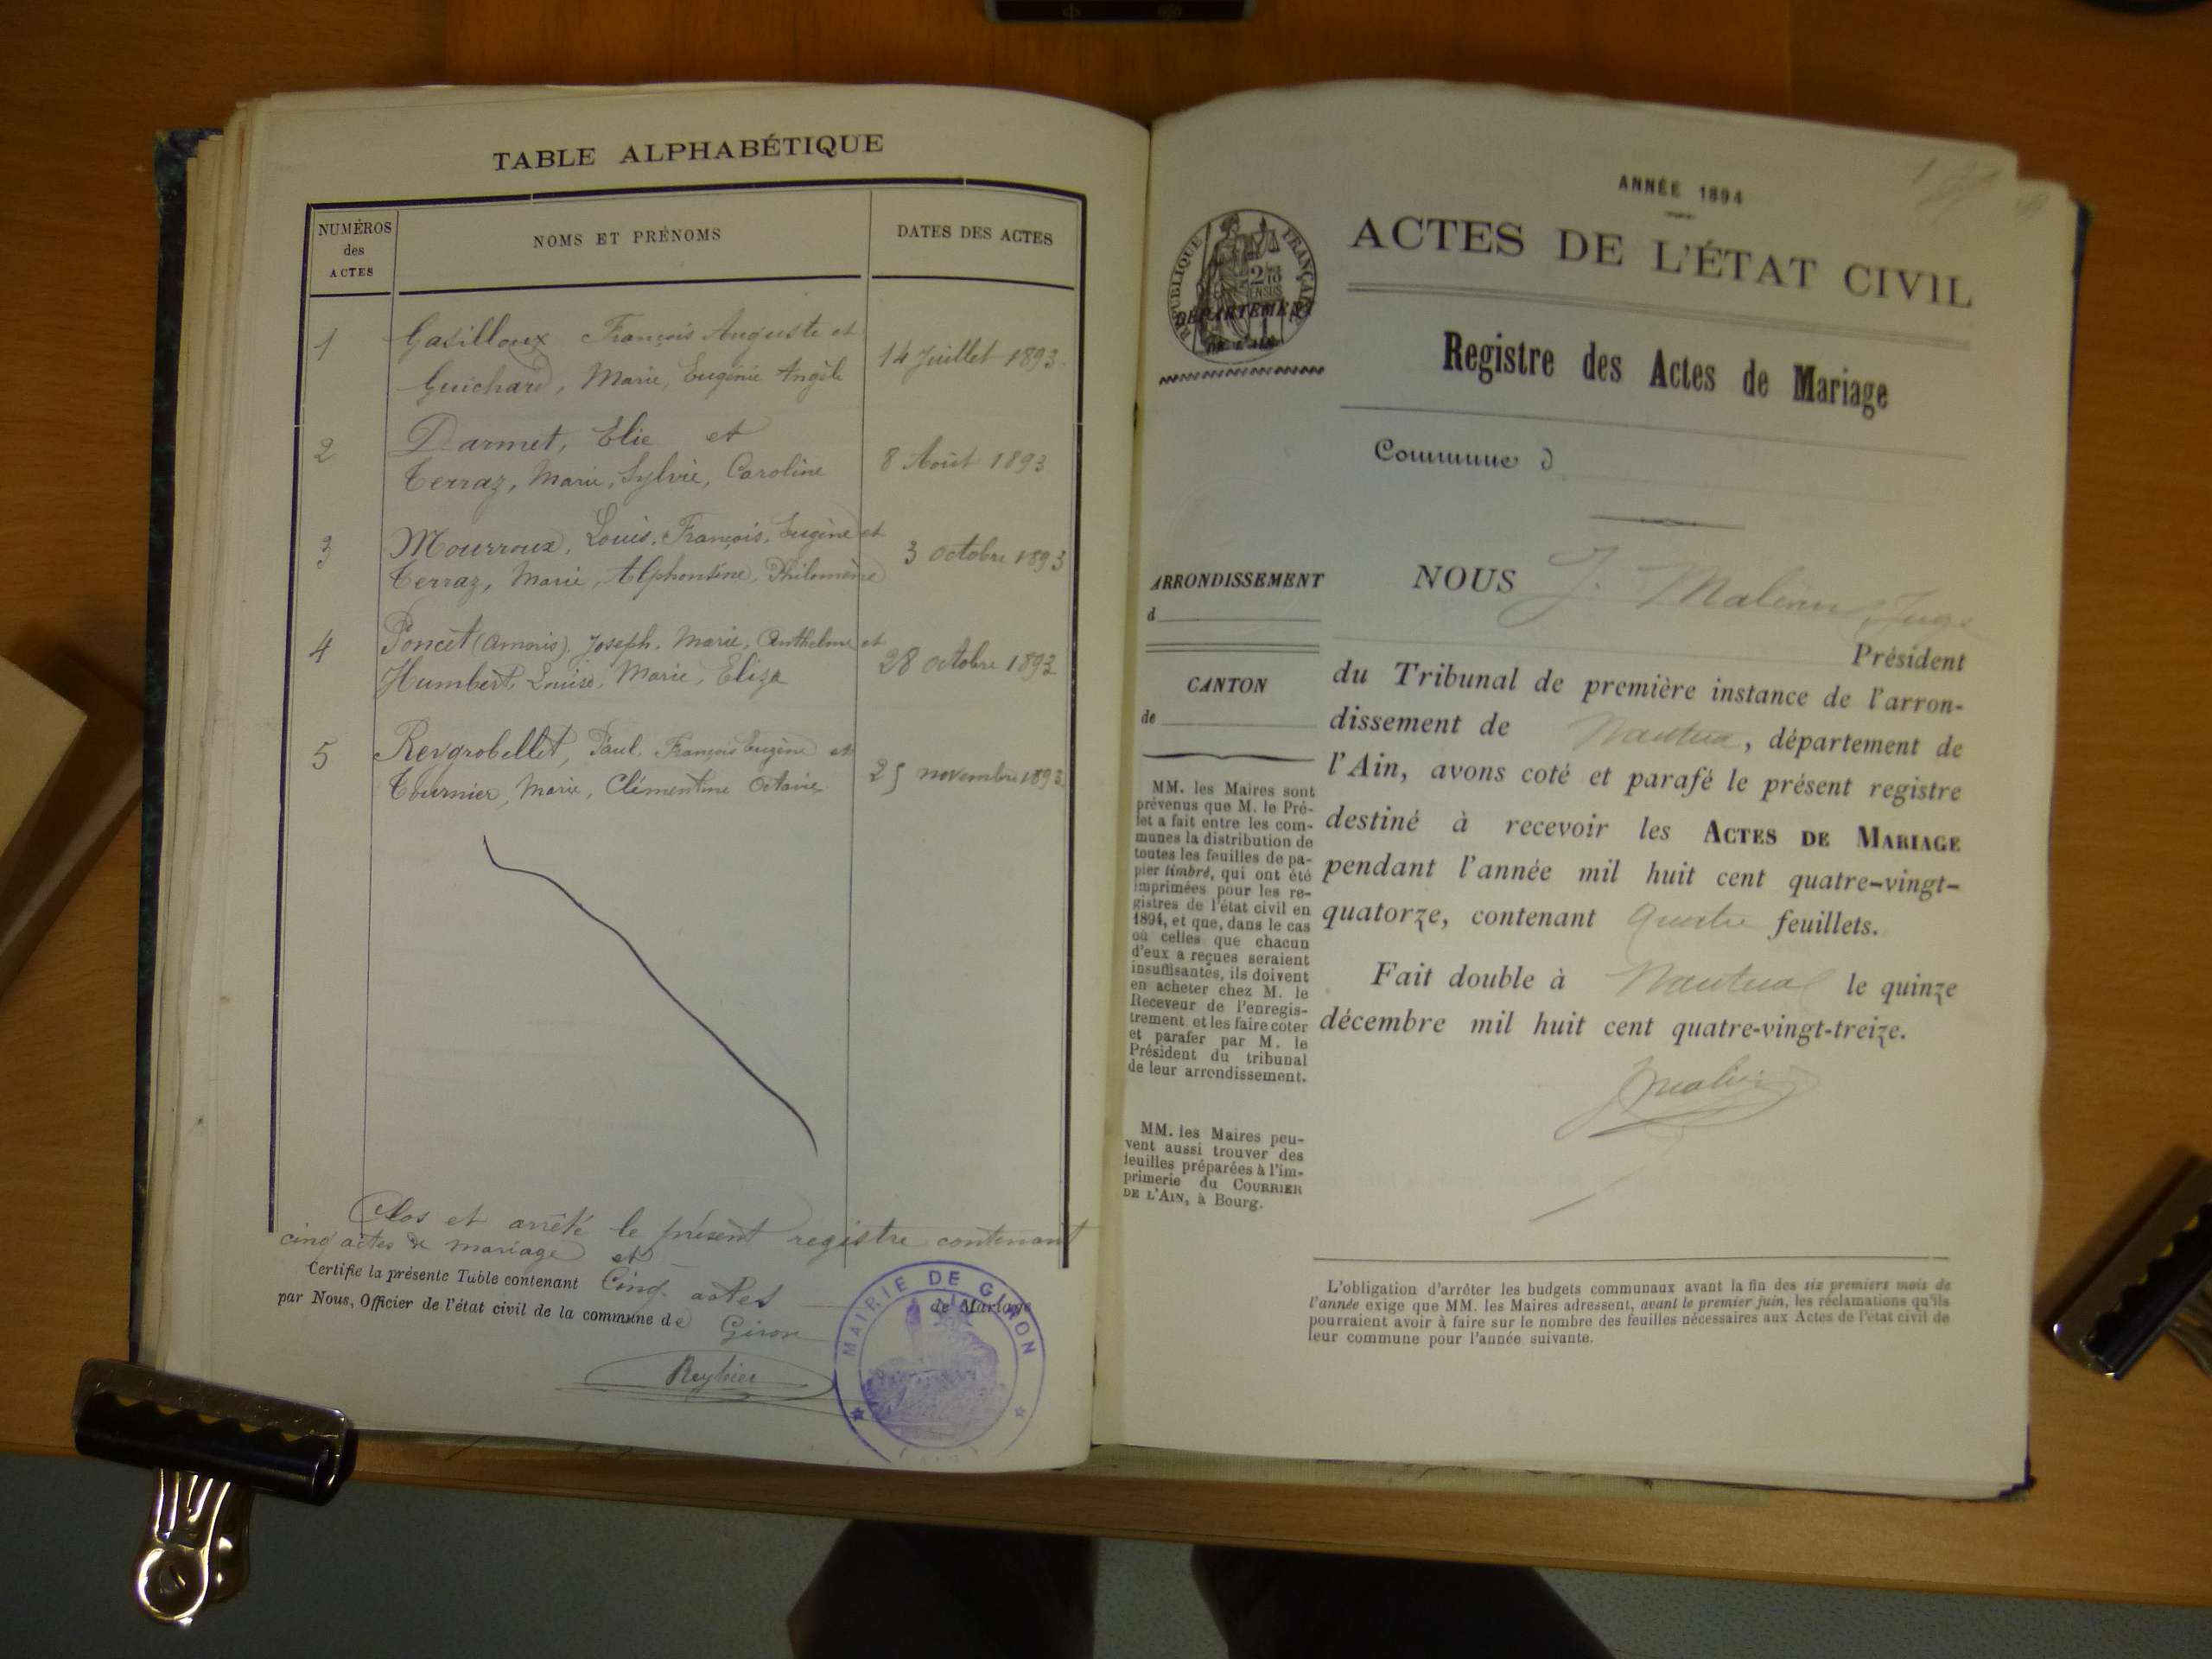 TABLE ALPHABÉTIQUE
NUMÉROS
des
ACTES
NOMS ET PRÉNOMS
DATES DES ACTES
1
Gasilloux François Auguste et
Guichard, Marie, Eugénie Angèle
14 Juillet 1893.
2
Darmet, Elie et
Terraz, Marie, Sylvie, Caroline
8 Août 1893
3
Mourroux, Louis, François, Eugène et
Terraz, Marie, Alphonsine, Philomène
3 octobre 1893
4
Poncet Joseph, Marie, Anthelme et
Humbert, Louise, Marie, Eliza
28 octobre 1893
5
Reygrobellet, Paul, François Eugène et
Tournier, Marie, Clémentine Octavie
25 novembre 1893
Clos et arrêté le présent registre contenant
cinq actes de mariage et
Certifie la présente Table contenant Cinq actes de Mariage
par Nous, Officier de l'état civil de la commune de Giron
Reybier
MAIRIE DE GIRON
ANNÉE 1894
ACTES DE L'ÉTAT CIVIL
RÉPUBLIQUE FRANÇAISE
DÉPARTEMENT
DE L'AIN
Registre des Actes de Mariage
Commune d
ARRONDISSEMENT
d
CANTON
de
MM. les Maires sont
prévenus que M. le Pré-
fet a fait entre les com-
munes la distribution de
toutes les feuilles de pa-
pier timbré, qui ont été
imprimées pour les re-
gistres de l'état civil en
1894, et que, dans le cas
où celles que chacun
d'eux a reçues seraient
insuffisantes, ils doivent
en acheter chez M. le
Receveur de l'enregis-
trement et les faire coter
et parafer par M. le
Président du tribunal
de leur arrondissement.
MM. les Maires peu-
vent aussi trouver des
feuilles préparées à l'im-
primerie du COURRIER
DE L'AIN, à Bourg.
NOUS J. Juge
Président
du Tribunal de première instance de l'arron-
dissement de Nantua, département de
l'Ain, avons coté et parafé le présent registre
destiné à recevoir les ACTES DE MARIAGE
pendant l'année mil huit cent quatre-vingt-
quatorze, contenant quatre feuillets.
Fait double à Nantua le quinze
décembre mil huit cent quatre-vingt-treize.
L'obligation d'arrêter les budgets communaux avant la fin des six premiers mois de
l'année exige que MM. les Maires adressent, avant le premier juin, les réclamations qu'ils
pourraient avoir à faire sur le nombre des feuilles nécessaires aux Actes de l'état civil de
leur commune pour l'année suivante.